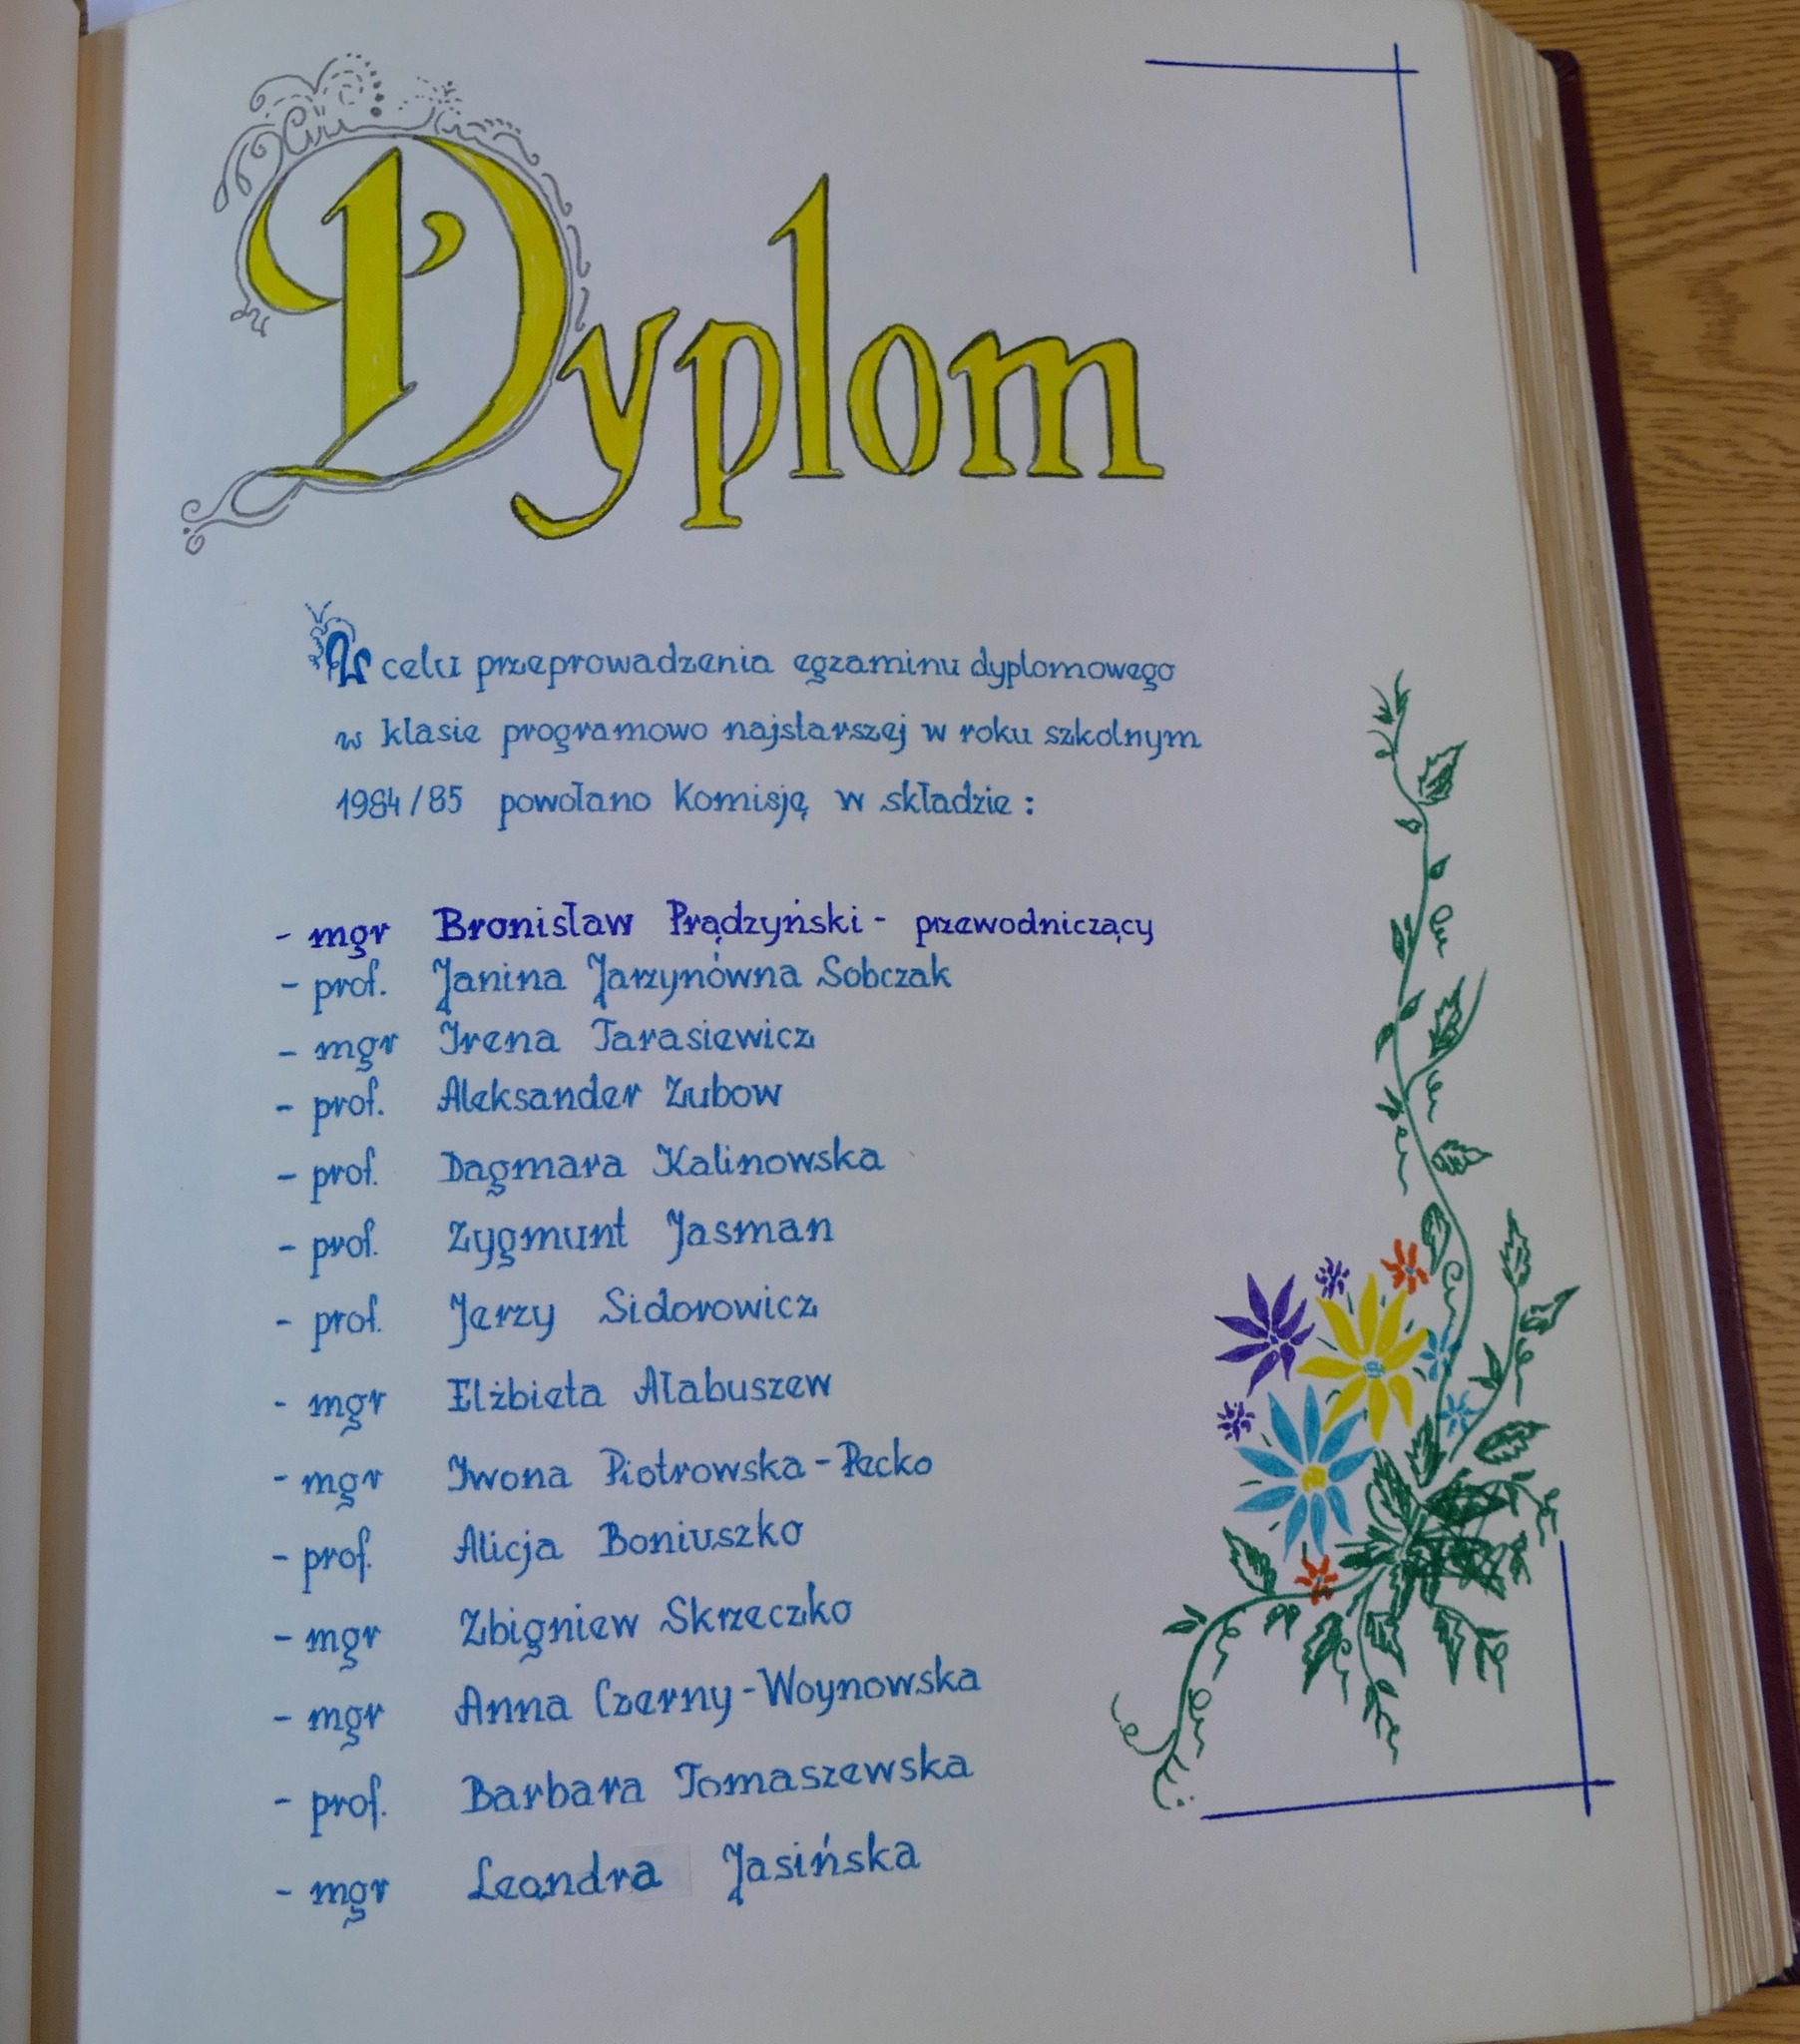 Dyplom
W celu przeprowadzenia egzaminu dyplomowego
w klasie programowo najstarszej w roku szkolnym
1984/85 powołano Komisję w składzie :
- mgr Bronisław Prądzyński - przewodniczący
- prof. Janina Jarzynówna Sobczak
- mgr Irena Tarasiewicz
- prof. Aleksander Zubow
- prof. Dagmara Kalinowska
- prof. Zygmunt Jasman
- prof. Jerzy Sidorowicz
- mgr Elżbieta Ałabuszew
- mgr Iwona Piotrowska-Pecko
- prof. Alicja Boniuszko
- mgr Zbigniew Skrzeczko
- mgr Anna Czerny-Woynowska
- prof. Barbara Tomaszewska
- mgr Leandra Jasińska